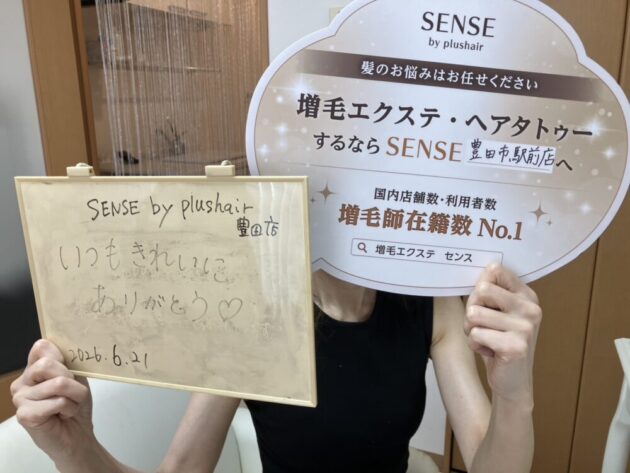 SENSE by plushair
豊田店
いつもきれいに
ありがとう♡
2026.6.21
SENSE
by plushair
髪のお悩みはお任せください
増毛エクステ・ヘアタトゥー
するなら SENSE 豊田市駅前店へ
国内店舗数・利用者数
増毛師在籍数 No.1
増毛エクステ センス